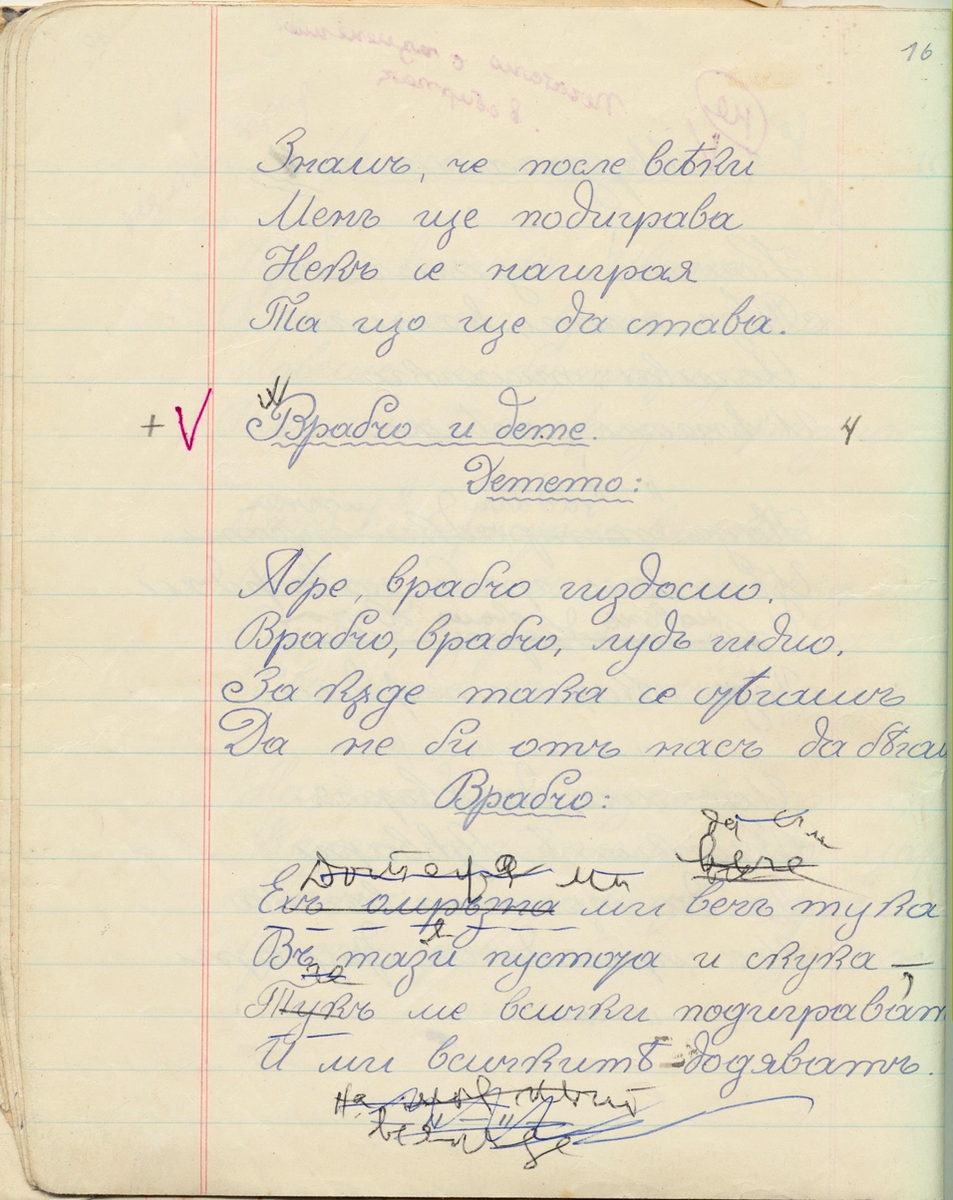 16
Знамъ, че после всѣки
Менъ ще подиграва
Некъ се наиграя
Та що ще да става.
+ V Врабчо и дете. 4
Детето:
Абре, врабчо гиздосио.
Врабчо, врабчо, лудъ гидио.
За кѫде така се стѣгашъ
Да не би отъ насъ да бѣгаш
Врабчо:
да
Дотегна ми вече
Ехъ омръзна ми вечъ тука
Въ тази пустота и скука —
Тукъ ме всички подиграват
И ми всичкитѣ додяватъ.
на